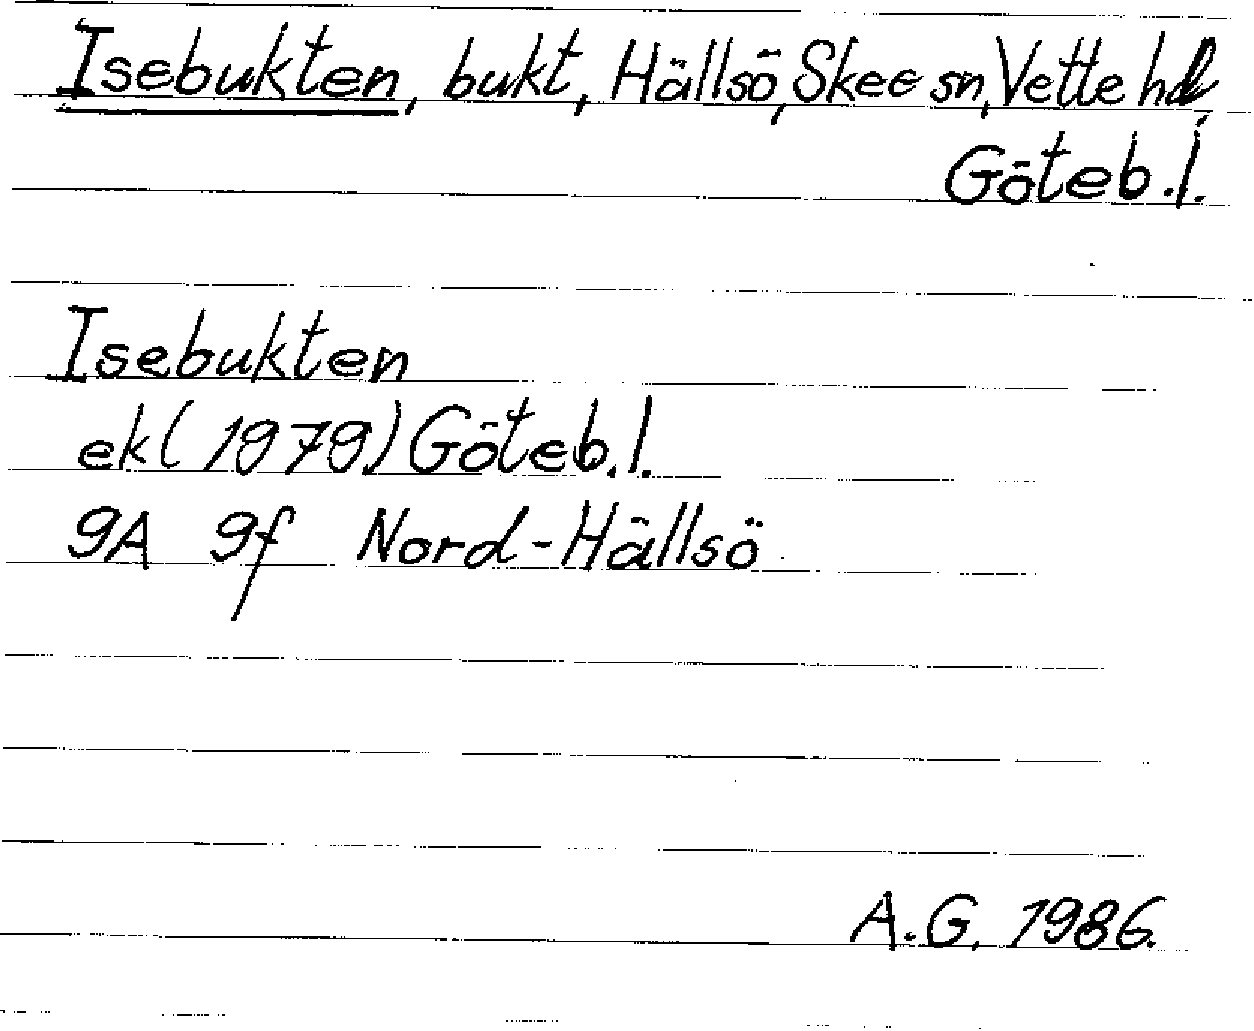 Isebukten, bukt, Hällsö, Skee sn, Vette hd,
Göteb.l.
Isebukten
ek (1979) Göteb.l.
9A 9f Nord-Hällsö
A.G. 1986.